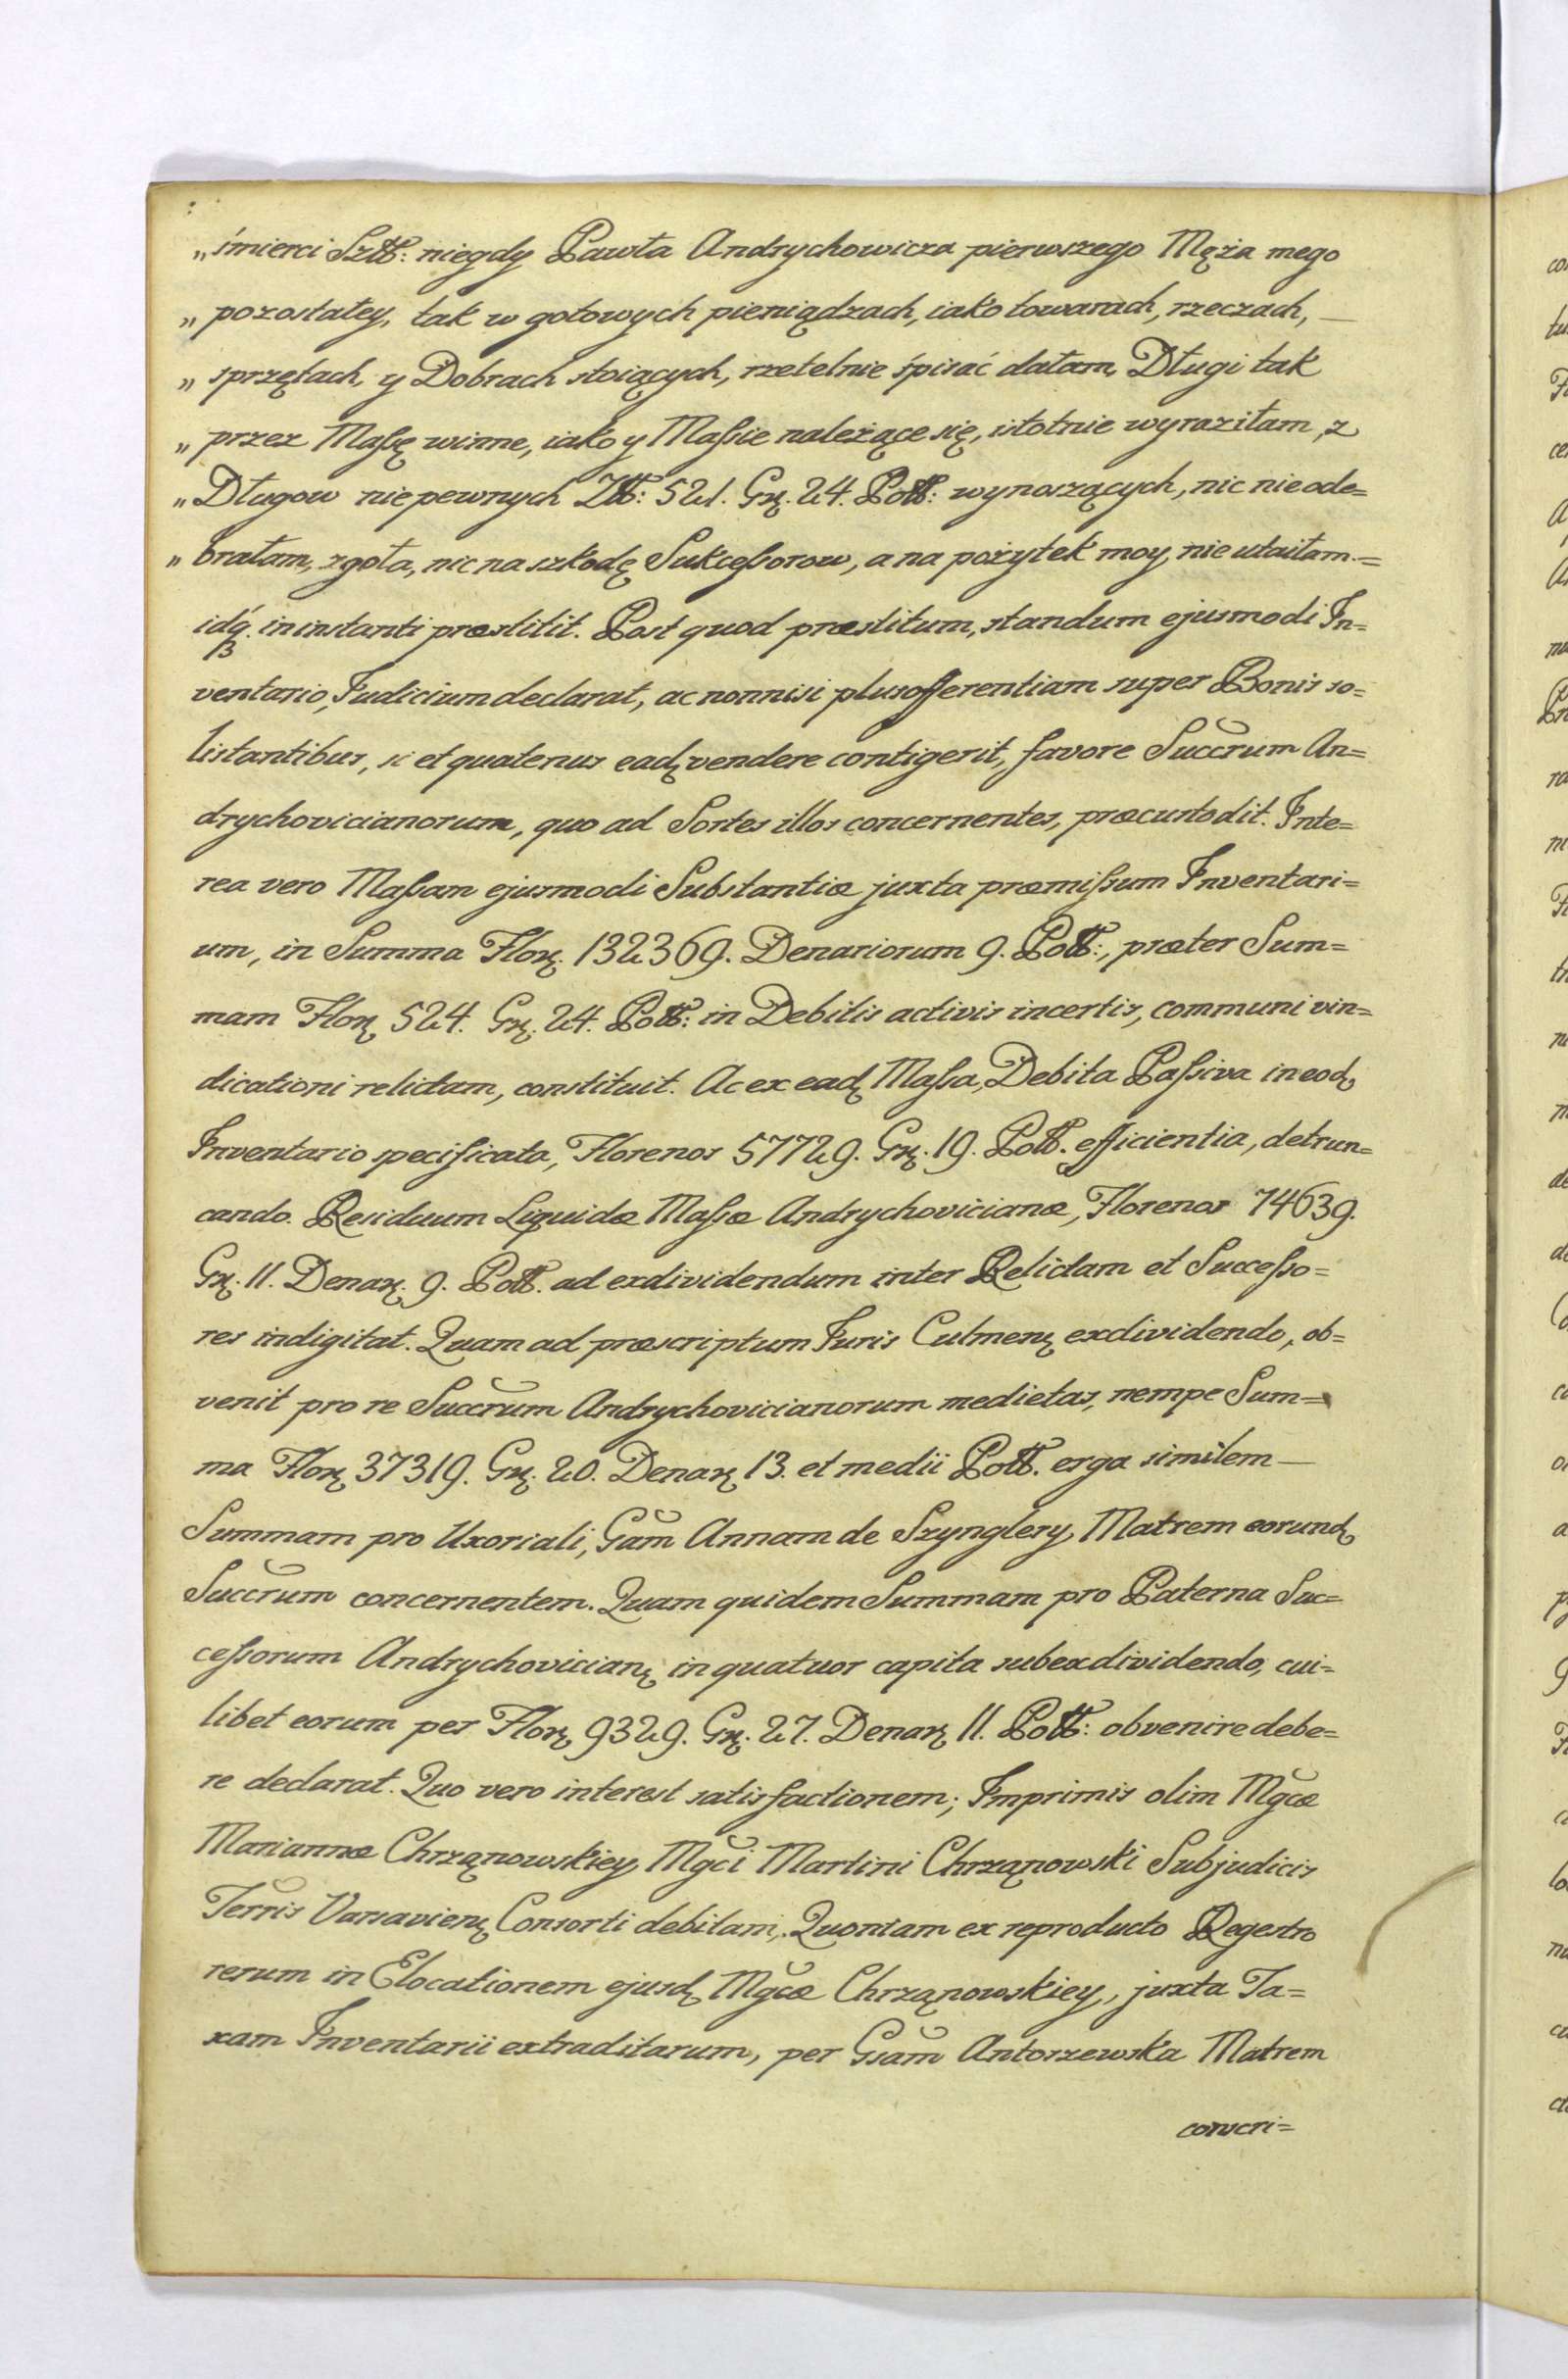 „śmierci Szltt: niegdy Pawła Andrychowicza pierwszego Męża mego
„ pozostałey, tak w gotowych pieniądzach, iako towarach, rzeczach, —
„ sprzętach, y Dobrach stoiących, rzetelnie śpisać dałam, Długi tak
„ przez Maſsę winne, iako y Maſsie należące się, istotnie wyraziłam, z
„ Długow niepewnych Złł: 521. Gɼ. 24. Poll: wynoszących, nic nieode=
„ brałam, zgoła, nic na szkodę Sukceſsorow, a na pożytek moy, nie utaiłam.=
idq́ in instanti præstitit. Post quod præstitum, standum ejusmodi In=
ventario, Judicium declarat, ac nonnisi plusofferentiam super Bonis so=
listantibus, si et quatenus eadɀ vendere contigerit, favore Succrum An=
drychovicianorum, quo ad Sortes illos concernentes, præcustodit. Inte=
rea vero Maſsam ejusmodi Substantiæ juxta præmiſsum Inventari=
um, in Summa Floɼ. 132369. Denariorum 9. Poll:, præter Sum=
mam Floɼ 524. Gɼ. 24. Poll: in Debitis activis incertis, communi vin=
dicationi relictam, constituit. Ac ex eadɀ Maſsa, Debita Paſsiva in eodɀ
Inventario specificata, Florenos 57729. Gɼ. 19. Poll. efficientia, detrun=
cando. Residuum Liquidæ Maſsæ Andrychovicianæ, Florenos 74639.
Gɼ. 11. Denaɼ. 9. Poll. ad exdividendum inter Relictam et Succeſso=
res indigitat. Quam ad præscriptum Juris Culmenɀ exdividendo, ob=
venit pro re Succrum Andrychovicianorum medietas, nempe Sum=
ma Floɼ 37319. Gɼ. 20. Denaɼ 13. et medii Poll. erga similem —
Summam pro Uxoriali, Gam Annam de Szynglery, Matrem eorundɀ
Succrum concernentem. Quam quidem Summam pro Paterna Suc=
ceſsorum Andrychovicianɀ in quatuor capita subexdividendo, cui=
libet eorum per Floɼ 9329. Gɼ. 27. Denaɼ 11. Poll: obvenire debe=
re declarat. Quo vero interest satisfactionem; Imprimis olim Mgcæ
Mariannæ Chrząnowskiey, Mgci Martini Chrząnowski Subjudicis
Terris Varsavienɀ Consorti debitam, Quoniam ex reproducto Regestro
rerum in Elocationem ejusdɀ Mgcæ Chrząnowskiey, juxta Ta=
xam Inventarii extraditarum, per Gsam Antoszewska Matrem
conscri=